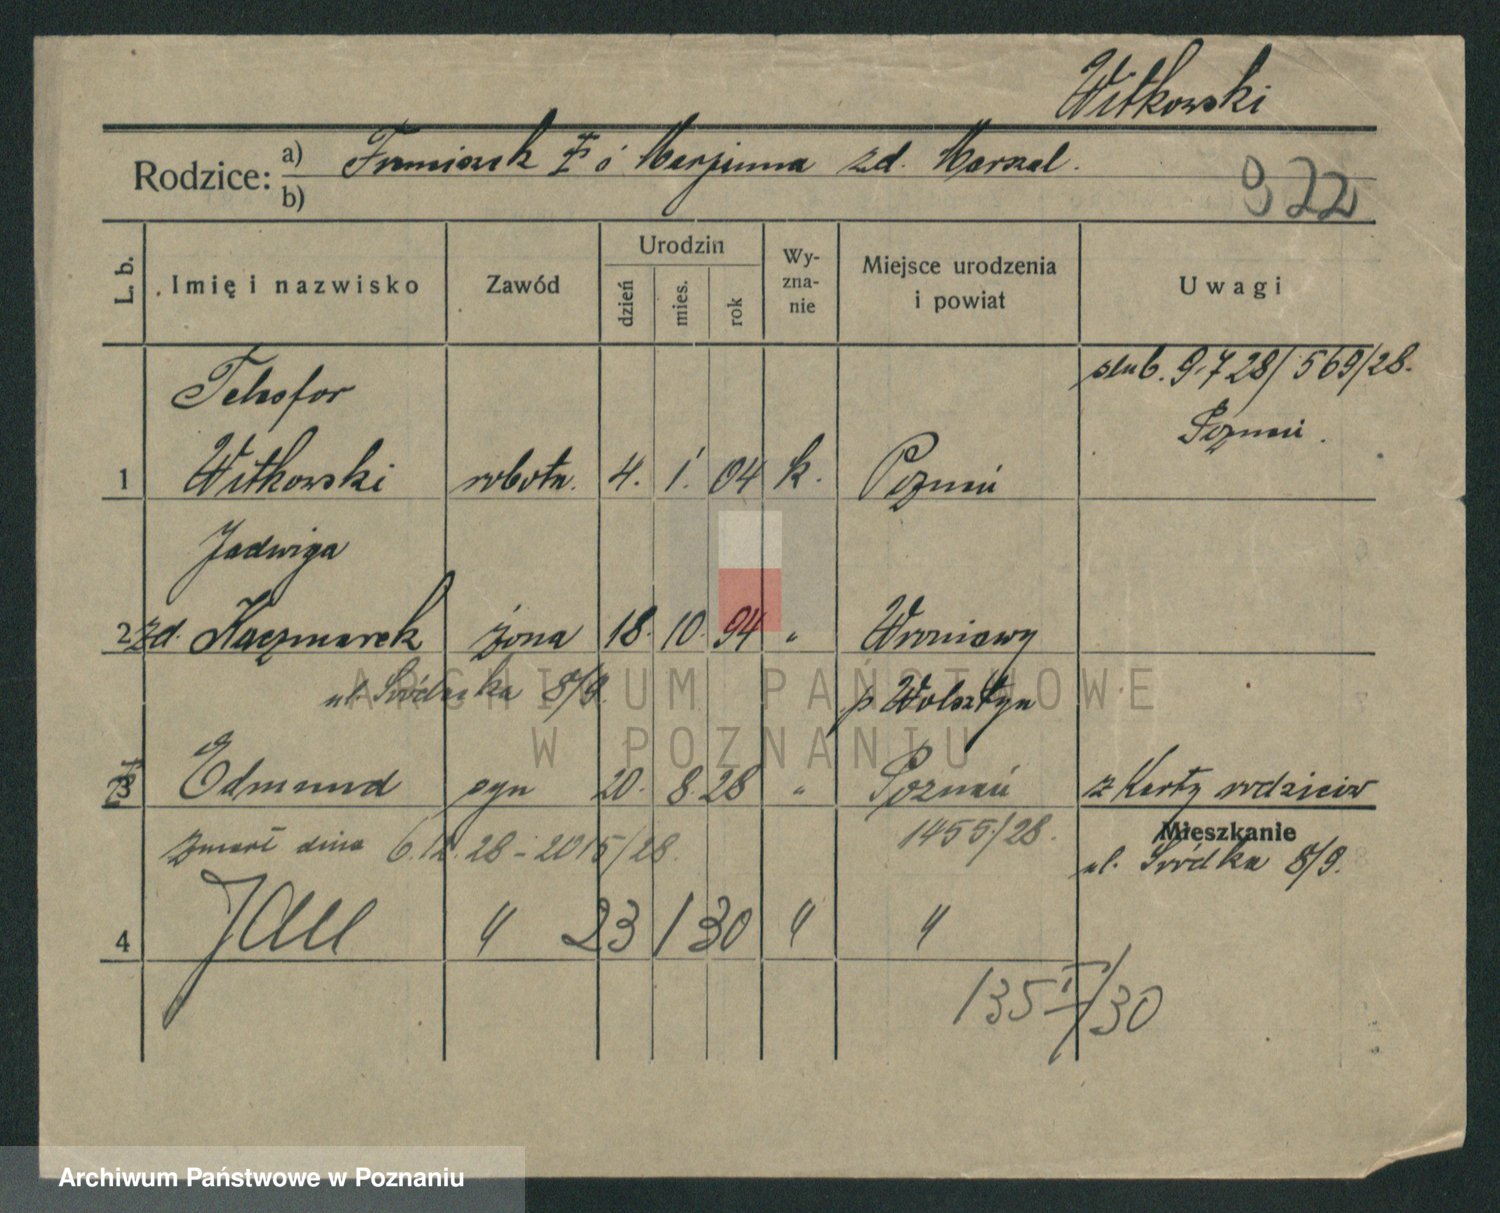 Witkowski
Rodzice: a) Franciszek i Marjanna zd. Marszal.
b)
922
L. b. Imię i nazwisko Zawód Urodzin dzień mies. rok Wy-zna-nie Miejsce urodzenia i powiat Uwagi
Telesfor ślub. 9.7 28/569/28.
Poznań.
1 Witkowski robotn. 4. 1. 04 k. Poznań
Jadwiga
2 zd. Kaczmarek żona 18. 10. 94 " Wroniawy
ul. Śródka 8/9. p Wolsztyn
3 Edmund syn 20. 8. 28 " Poznań z Karty rodziców
zmarł dnia 6.12.28 – 2015/28. 1455/28.
Mieszkanie
ul. Śródka 8/9.
4 Jan " 23 1 30 " "
135 I/30
ARCHIWUM PAŃSTWOWE
W POZNANIU
Archiwum Państwowe w Poznaniu